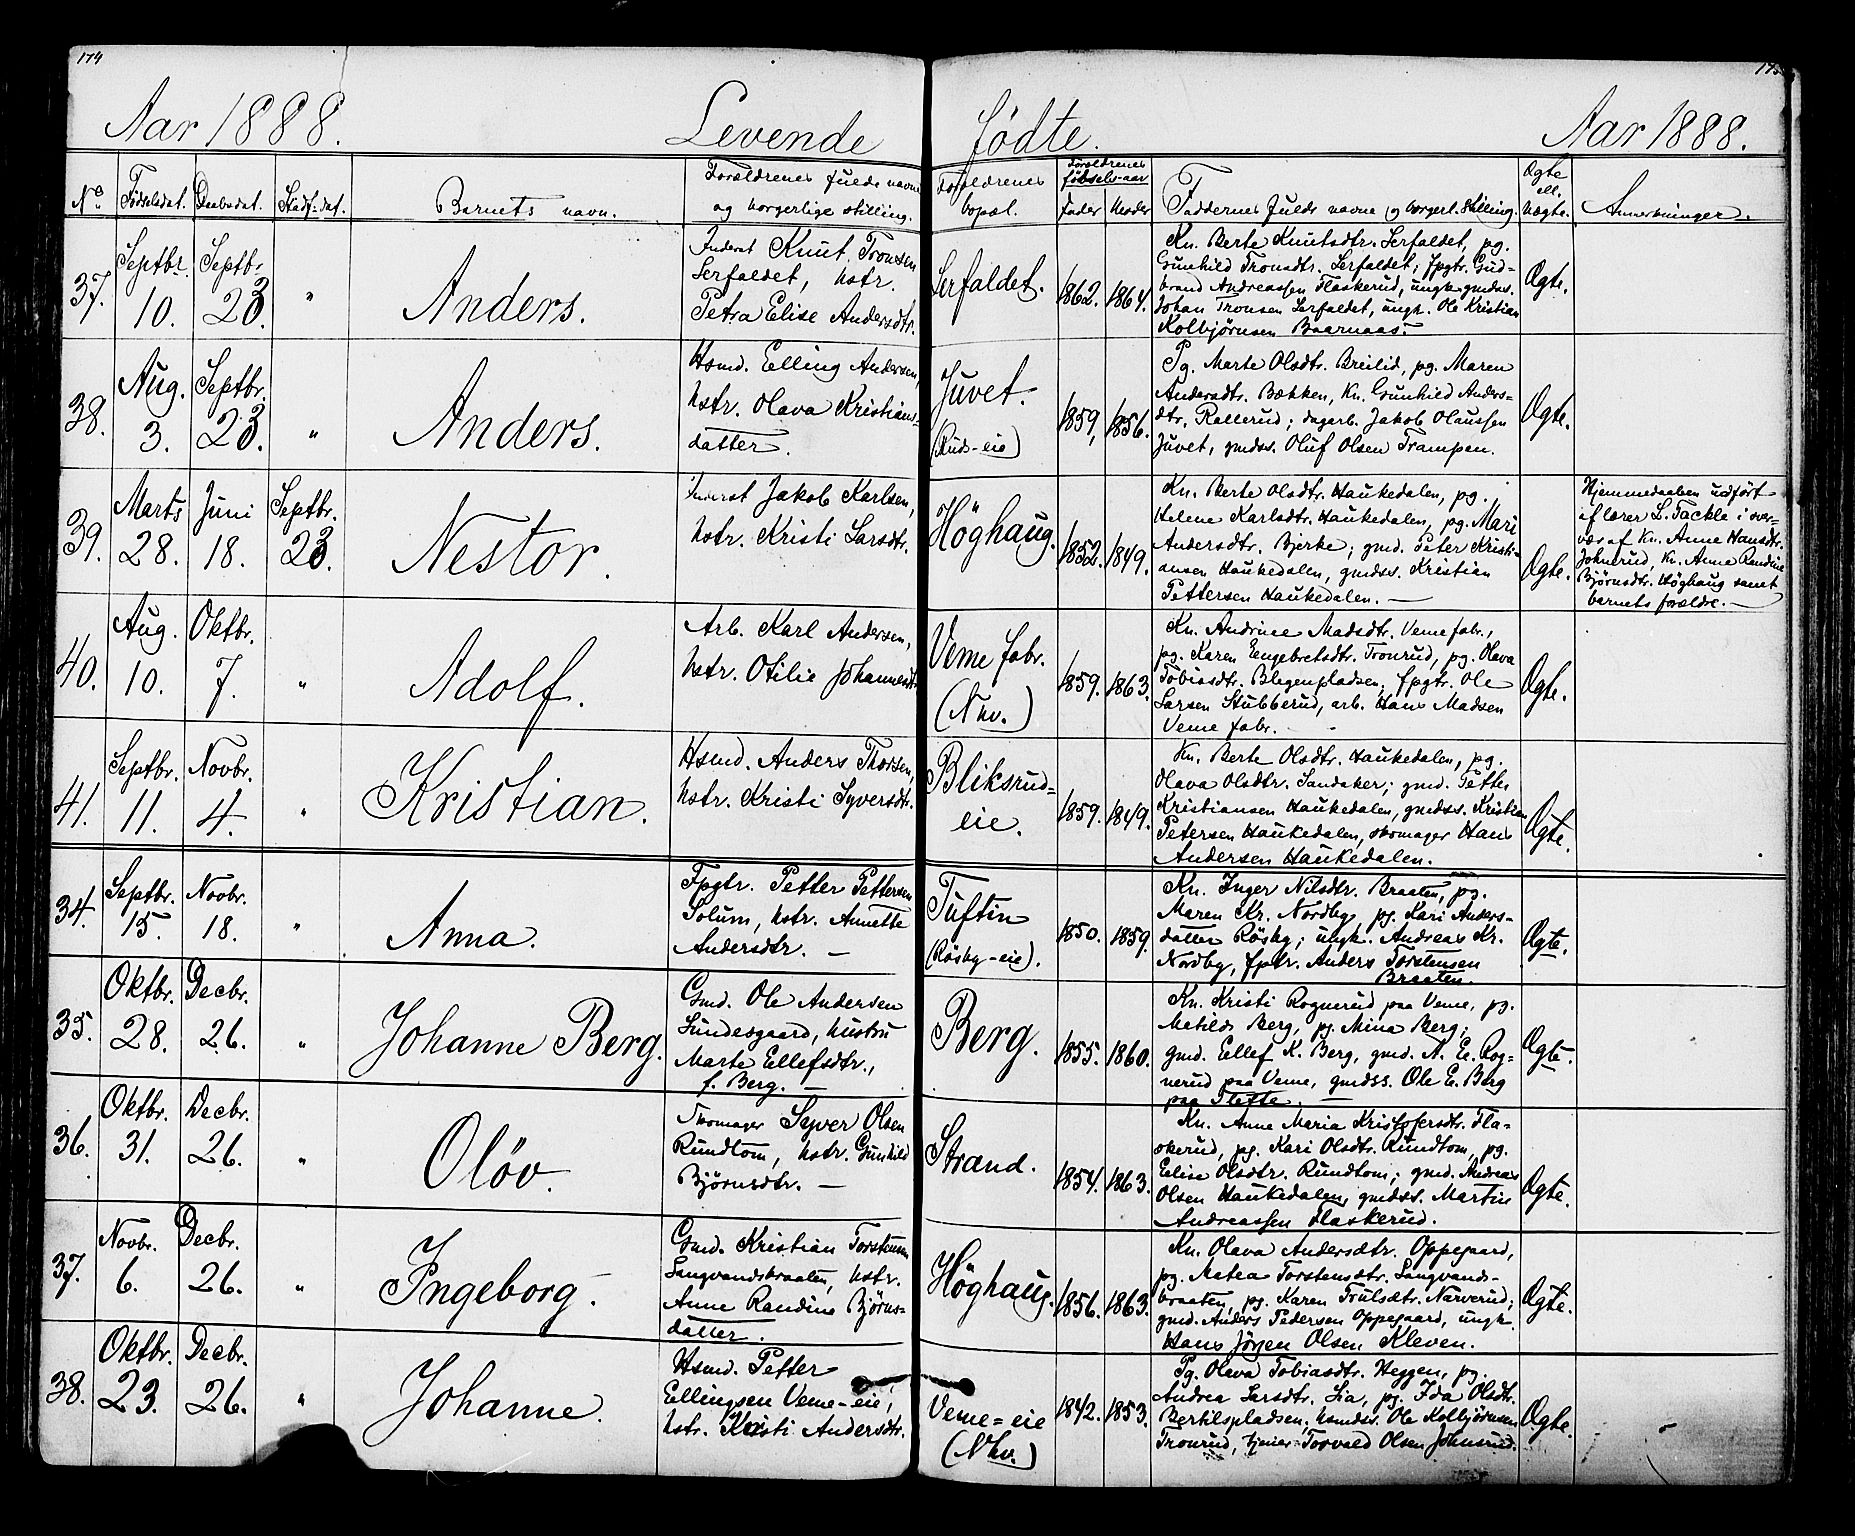 174
175
Aar 1888.
Levende
fødte.
Aar 1888.
No
Fødselsdat.
Daabsdat.
Stadf-dat.
Barnets navn.
Forældrenes fulde navne
og borgerlige stilling.
Forældrenes
bopæl.
Forældrenes
fødsels-aar
Fader
Moder
Faddernes fulde navne og borgerl. stilling.
Ægte
ell.
uægte.
Anmerkninger.
37.
Septbr.
10.
Septbr.
23.
"
Anders.
Inderst Knut Tronsen
Serfaldet, hstr.
Petra Elise Andersdtr.
Serfaldet.
1862.
1864.
Kn. Berte Knutsdtr. Serfaldet, pg.
Gunhild Tronsdtr. Serfaldet; fpgtr. Gud-
brand Andreassen Flaskerud, ungk. gmdss.
Johan Tronsen Serfaldet, ungk. Ole Kristian
Kolbjørnsen Baarnaas.
Ægte.
38.
Aug.
3.
Septbr.
23.
"
Anders.
Hsmd. Elling Andersen,
hstr. Olava Kristians-
datter.
Juvet.
(Ruds-eie)
1859,
1856.
Pg. Marte Olsdtr. Breilid, pg. Maren
Andersdtr. Bækken, Kn. Gunhild Anders-
dtr. Rallerud; dagarb. Jakob Olaussen
Juvet, gmdss. Oluf Olsen Trampen.
Ægte.
39.
Marts
28.
Juni
18.
Septbr.
23.
Nestor.
Inderst Jakob Karlsen,
hstr. Kristi Larsdtr.
Höghaug.
1852.
1849.
Kn. Berte Olsdtr. Haukedalen, pg.
Helene Karlsdtr. Haukedalen, pg. Mari
Andersdtr. Bjerke; gmd. Peter Kristi-
ansen Haukedalen, gmdss. Kristian
Pettersen Haukedalen. —
Ægte.
Hjemmedaaben udført
af lærer L. Tackle i over-
vær af Kn. Anne Hansdtr.
Johnsrud, Kn. Anne Randine
Bjørnsdtr. Høghaug samt
barnets forældre. —
40.
Aug.
10.
Oktbr.
7.
"
Adolf.
Arb. Karl Andersen,
hstr. Otilie Johannesdtr.
Veme fabr.
(Nhv.)
1859.
1863.
Kn. Andrine Madsdtr. Veme fabr.,
pg. Karen Engebretsdtr. Tronrud, pg. Olava
Tobiasdtr. Blegenpladsen; fpgtr. Ole
Larsen Stubberud, arb. Hans Madsen
Veme fabr.
Ægte.
41.
Septbr.
11.
Novbr.
4.
"
Kristian.
Hsmd. Anders Thorsen,
hstr. Kristi Syversdtr.
Bliksrud-
eie.
1859.
1849.
Kn. Berte Olsdtr. Haukedalen, pg.
Olava Olsdtr. Sandaker; gmd. Petter
Kristiansen Haukedalen, gmdss. Kristian
Petersen Haukedalen, skomager Hans
Andersen Haukedalen.
Ægte.
34.
Septbr.
15.
Novbr.
18.
"
Anna.
Fpgtr. Petter Pettersen
Solum, hstr. Annette
Andersdtr. —
Tuftin
(Røsby-eie).
1850.
1859.
Kn. Inger Nilsdtr. Braaten, pg.
Maren Kr. Nordby, pg. Kari Anders-
datter Røsby; ungk. Andreas Kr.
Nordby, fptr. Anders Torstensen
Braaten.
Ægte.
35.
Oktbr.
28.
Decbr.
26.
"
Johanne Berg.
Gmd. Ole Andersen
Lundesgaard, hustru
Marte Ellefsdtr.,
f. Berg. —
Berg.
1855.
1860.
Kn. Kristi Rognerud paa Veme, pg.
Matilde Berg, pg. Mina Berg;
gmd. Ellef K. Berg, gmd. A. E. Rog-
nerud paa Veme, gmdss. Ole E. Berg
paa Flette. —
Ægte.
36.
Oktbr.
31.
Decbr.
26.
"
Oløv.
Skomager Syver Olsen
Rundtom, hstr. Gunhild
Bjørnsdtr. —
Strand.
1854.
1863.
Kn. Anne Maria Kristofersdtr. Fla-
skerud, pg. Kari Olsdtr. Rundtom, pg.
Eline Olsdtr. Rundtom; gmd. Andreas
Olsen Haukedalen, gmdss. Martin
Andreassen Flaskerud.
Ægte.
37.
Novbr.
6.
Decbr.
26.
"
Ingeborg.
Gmd. Kristian Torstensen
Langvandsbraaten, hstr.
Anne Randine Bjørns-
datter.
Höghaug.
1856.
1863.
Kn. Olava Andersdtr. Oppegaard,
pg. Matea Torstensdtr. Langvands-
braaten, pg. Karen Trulsdtr. Narverud;
gmd. Anders Pedersen Oppegaard, ungk.
Hans Jörgen Olsen Kleven.
Ægte.
38.
Oktbr.
23.
Decbr.
26.
"
Johanne.
Hsmd. Petter
Ellingsen Veme-eie,
hstr. Kristi Andersdtr.
Veme=eie
(Nhv.)
1842.
1853.
Pg. Olava Tobiasdtr. Heggen, pg.
Andrea Larsdtr. Lia, pg. Ida Olsdtr.
Bertilspladsen; hsmdss. Ole Kolbjørnsen
Tronrud, tjener Torvald Olsen Johnsrud.
Ægte.